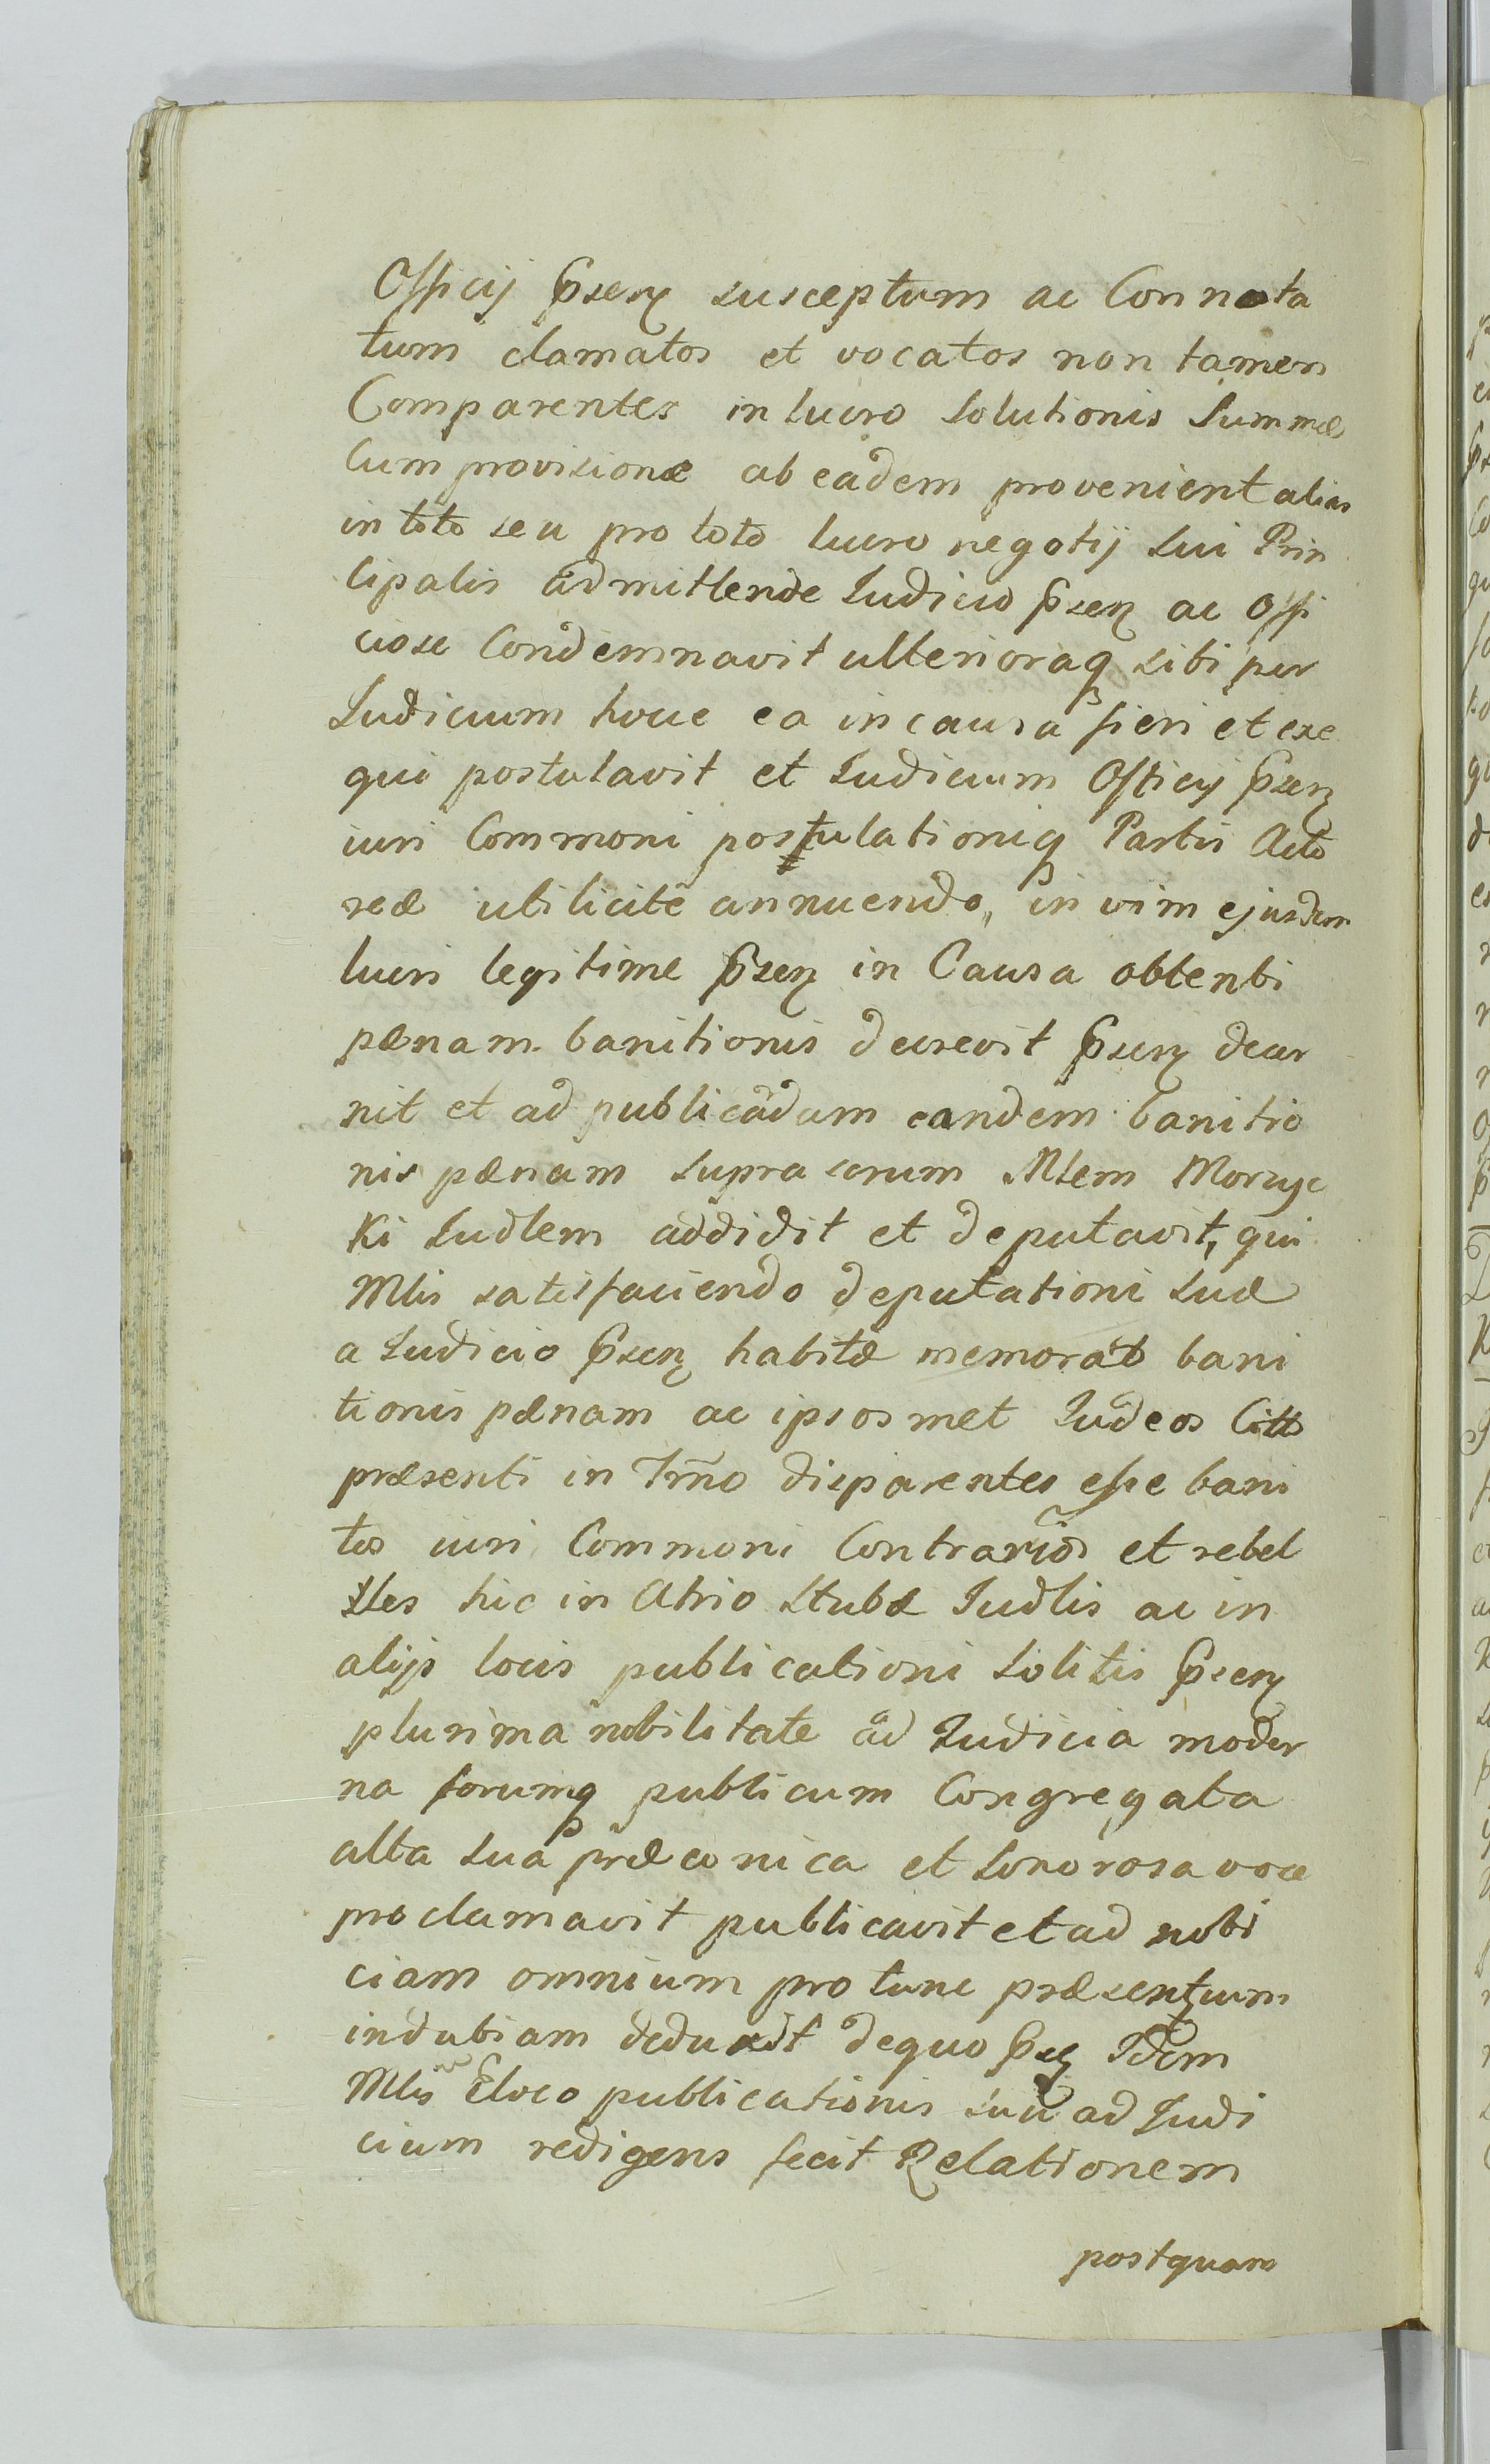 Officij pseñ susceptum ac Connota
tum clamatos et vocatos non tamen
Comparentes in lucro Solutionis Summæ
Cum provisione ab eadem provenient alias
in toto seu pro toto lucro negotij Sui Prin
cipalis admittende Iudicio pseñ ac Offi
ciose Condemnavit ulterioraq sibi per
Iudicium hocce ea in causa fieri et exe
qui postulavit et Iudicium Officij pseñ
iuri Commoni postulationiq Partis Acto
reæ utilicite annuendo, in vim ejusdem
lucri legitime pseñ in Causa obtenti
pænam banitionis decrevit pseñ decer
nit et ad publicãdam eandem banitio
nis pænam suprascrum Mlem Morzyc
Ki Iudlem addidit et deputavit, qui
Mlis satisfaciendo deputationi suæ
a Iudicio pseñ habitæ memorat bani
tionis pænam ac ipsosmet Iudeos Citt
præsenti in Trno disparentes esse bani
tos iuri Commoni Contrarios et rebel
les hic in Atrio Stubæ Iudlis ac in
alijs locis publicationi solitis pseñ
plurima nobilitate ad Iudicia moder
na forumq publicum Congregata
alta sua præconica et sonorosa voce
proclamavit publicavit et ad noti
ciam omnium pro tunc præsentium
indubiam deduxit dequo pseñ Idem
Mlis Eloco publicationis suæ ad Iudi
cium redigens fecit Relationem
postquam